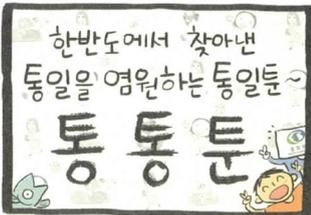 한반도에서 찾아낸
통일을 염원하는 통일툰~
통통툰